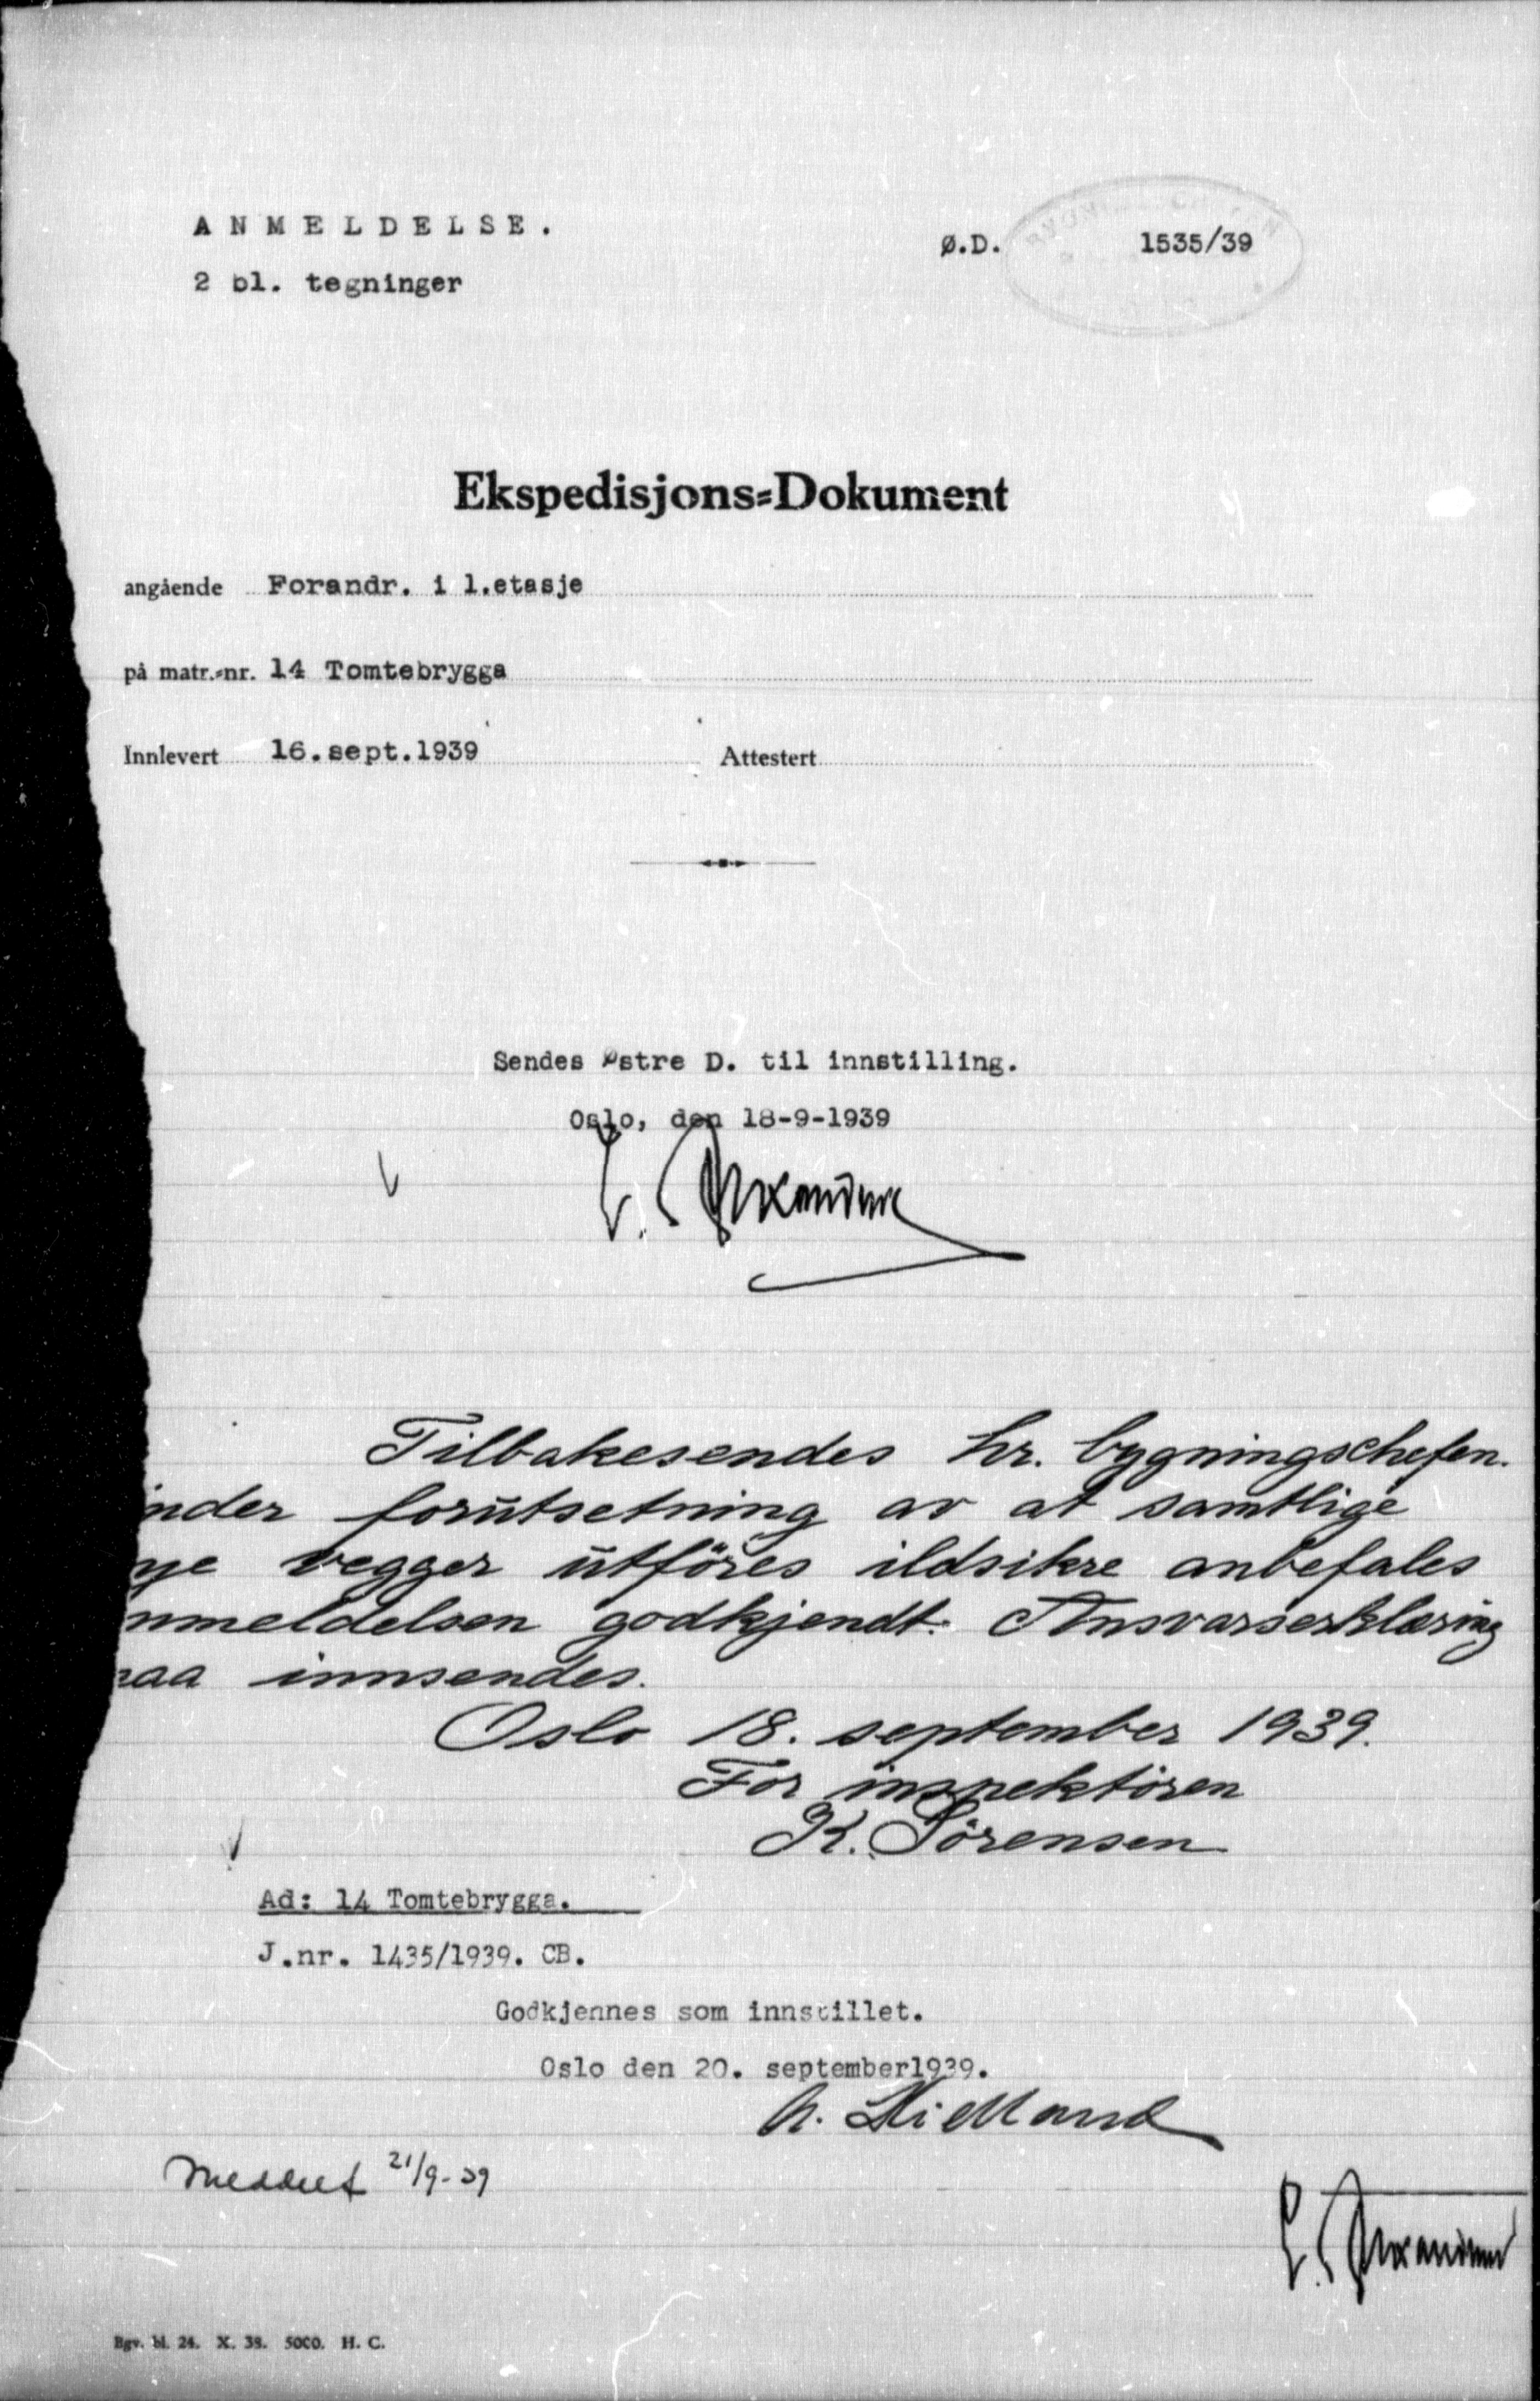 ANMELDELSE.
Ø.D. 1535/39
2 bl. tegninger
Ekspedisjons=Dokument
angående Forandr. i 1.etasje
på matr.=nr. 14 Tomtebrygga
Innlevert 16.sept.1939 Attestert
Sendes Østre D. til innstilling.
Oslo, den 18-9-1939
Tilbakesendes hr. bygningschefen.
nder forutsetning av at samtlige
ye vegger utföres ildsikre anbefales
nmeldelsen godkjendt. Ansvarserklæring
aa innsendes.
Oslo 18. september 1939.
For inspektören
K. Sörensen
Ad: 14 Tomtebrygga.
J.nr. 1435/1939. CB.
Godkjennes som innstillet.
Oslo den 20. september1939.
Meddelt 21/9-39
Bgv. bl. 24. X. 38. 5000. H. C.